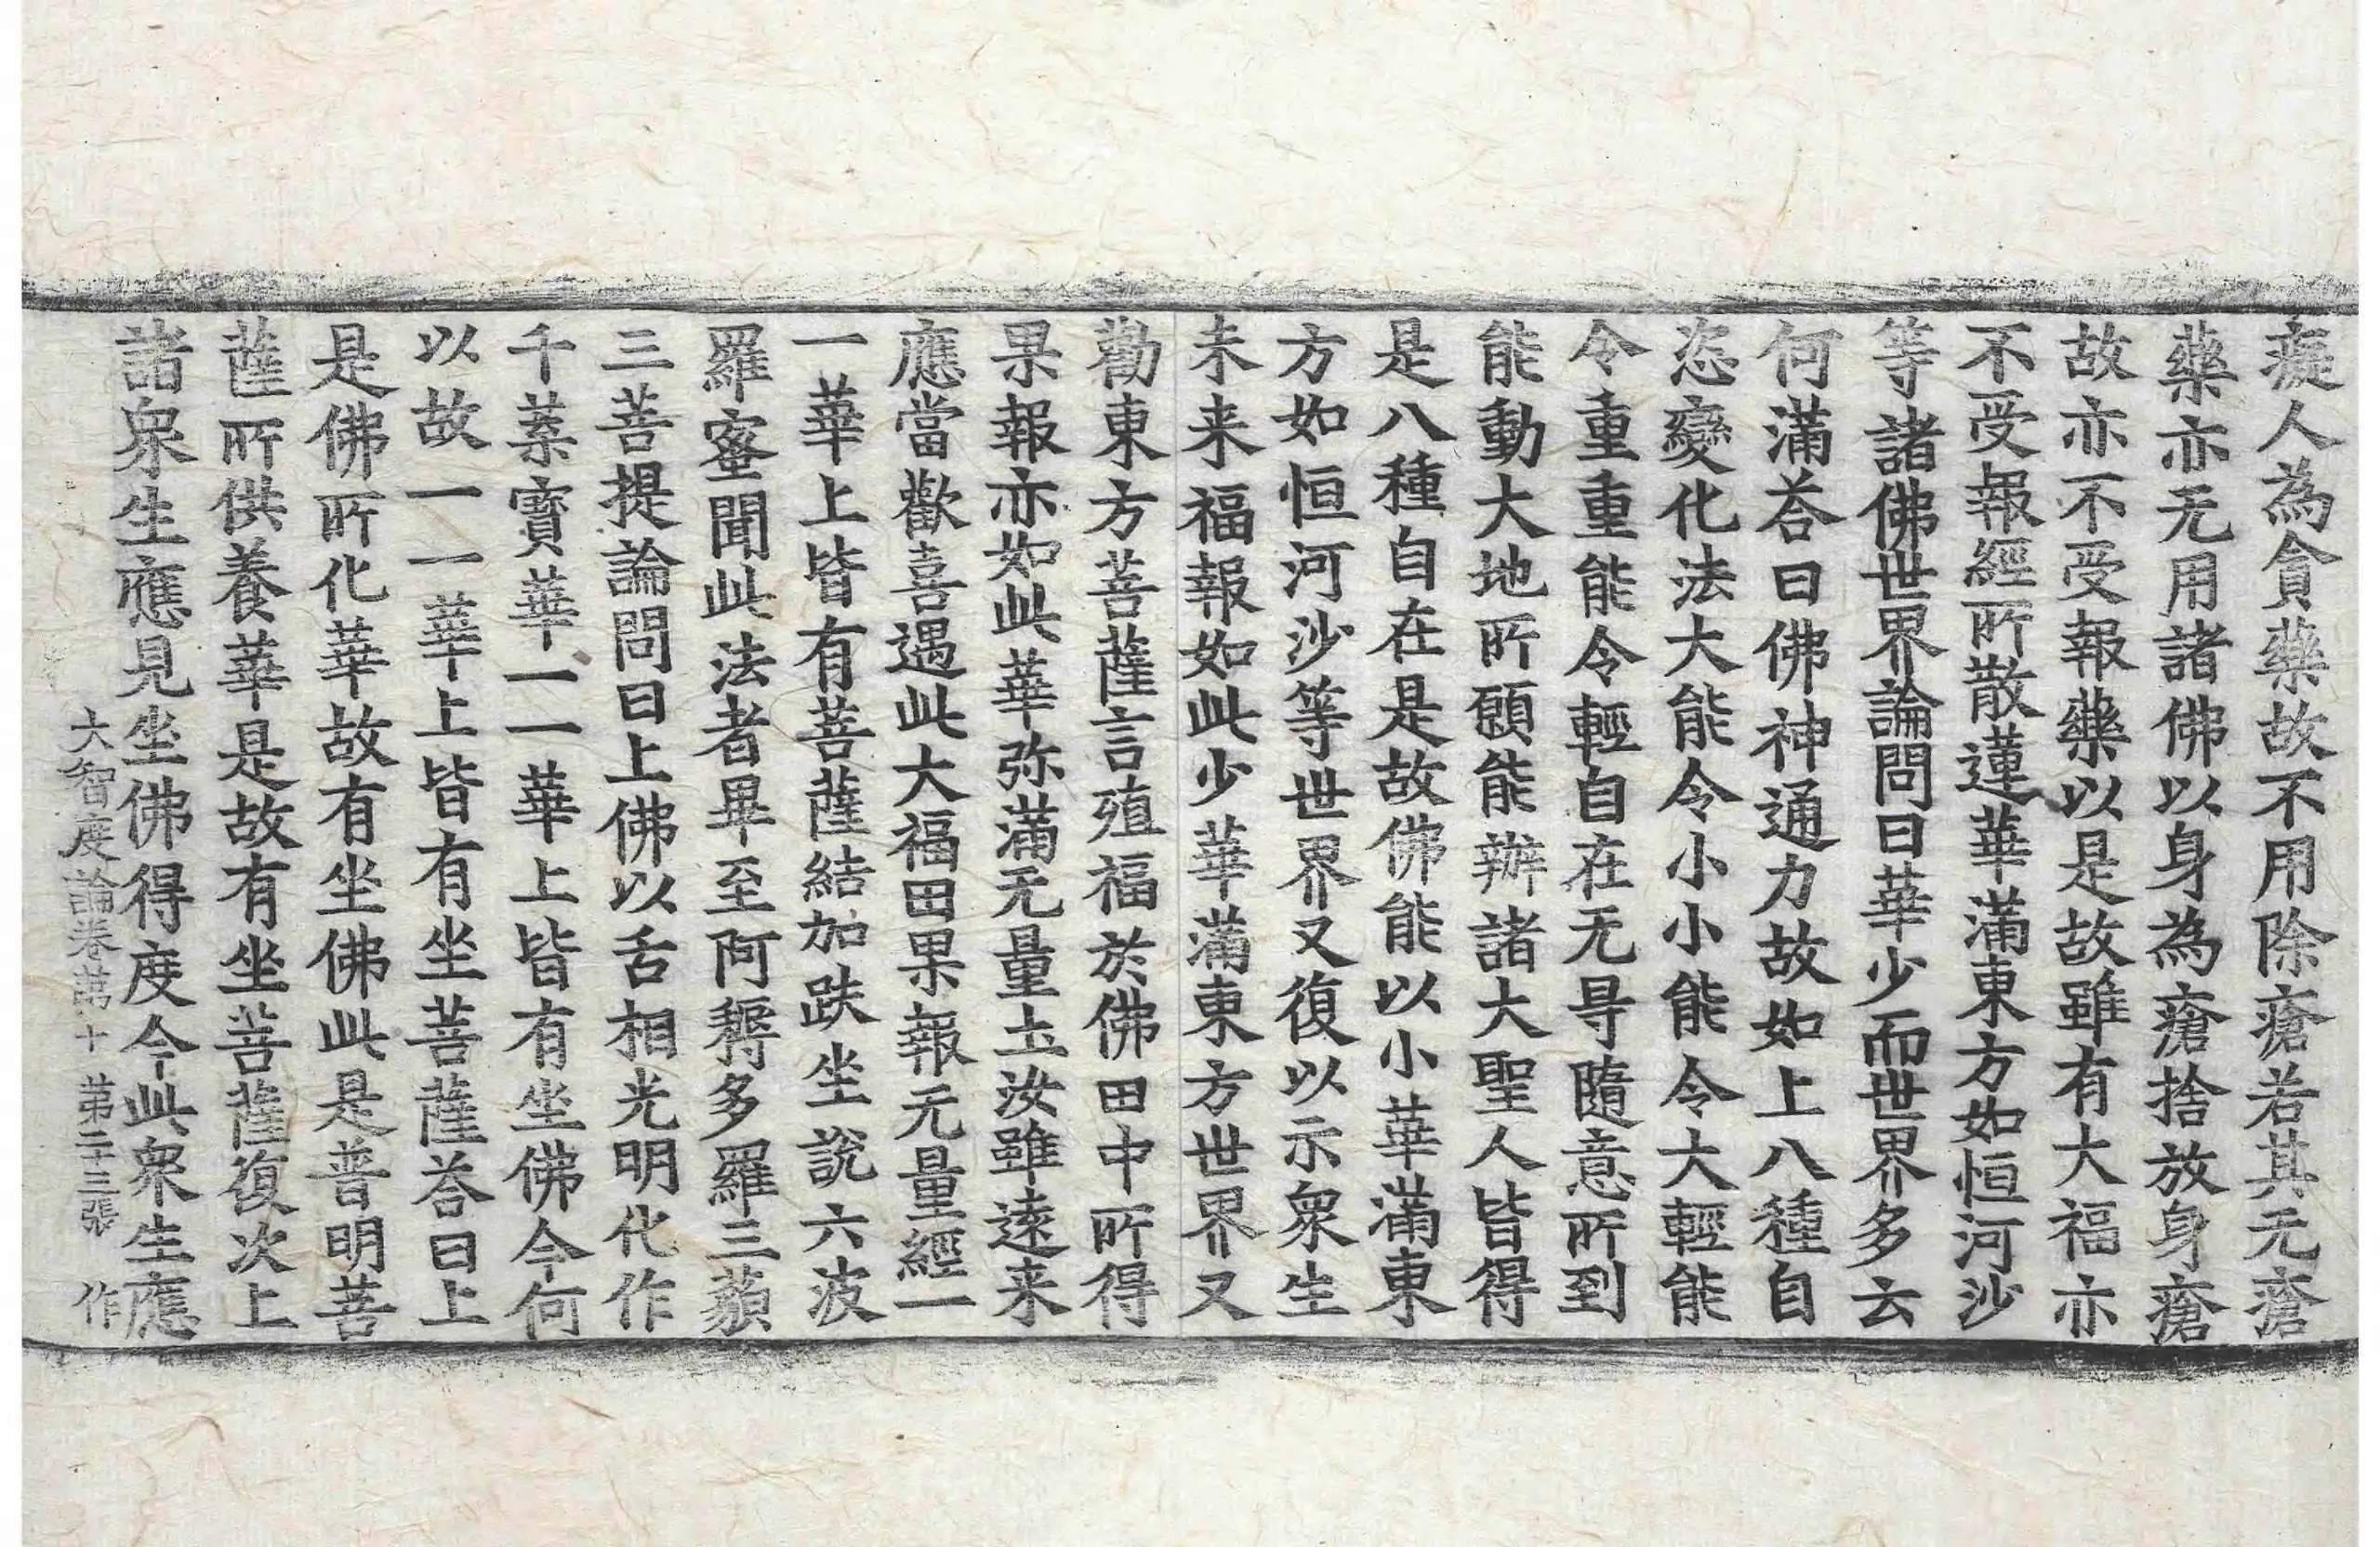 癡人為貪藥故不用除瘡若其无瘡
藥亦无用諸佛以身為瘡捨放身瘡
故亦不受報藥以是故雖有大福亦
不受報經所散蓮華滿東方如恒河沙
等諸佛世界論問曰華少而世界多云
何滿荅曰佛神通力故如上八種自
恣變化法大能令小小能令大輕能
令重重能令輕自在无㝵隨意所到
能動大地所願能辦諸大聖人皆得
是八種自在是故佛能以小華滿東
方如恒河沙等世界又復以示衆生
未来福報如此少華滿東方世界又
勸東方菩薩言殖福於佛田中所得
果報亦如此華弥滿无量土汝雖遠来
應當歡喜遇此大福田果報无量經一
一華上皆有菩薩結加趺坐說六波
羅蜜聞此法者畢至阿耨多羅三藐
三菩提論問曰上佛以舌相光明化作
千葉寶華一一華上皆有坐佛今何
以故一一華上皆有坐菩薩荅曰上
是佛所化華故有坐佛此是普明菩
薩所供養華是故有坐菩薩復次上
諸衆生應見坐佛得度今此衆生應
大智度論卷苐十 苐二十三張 作